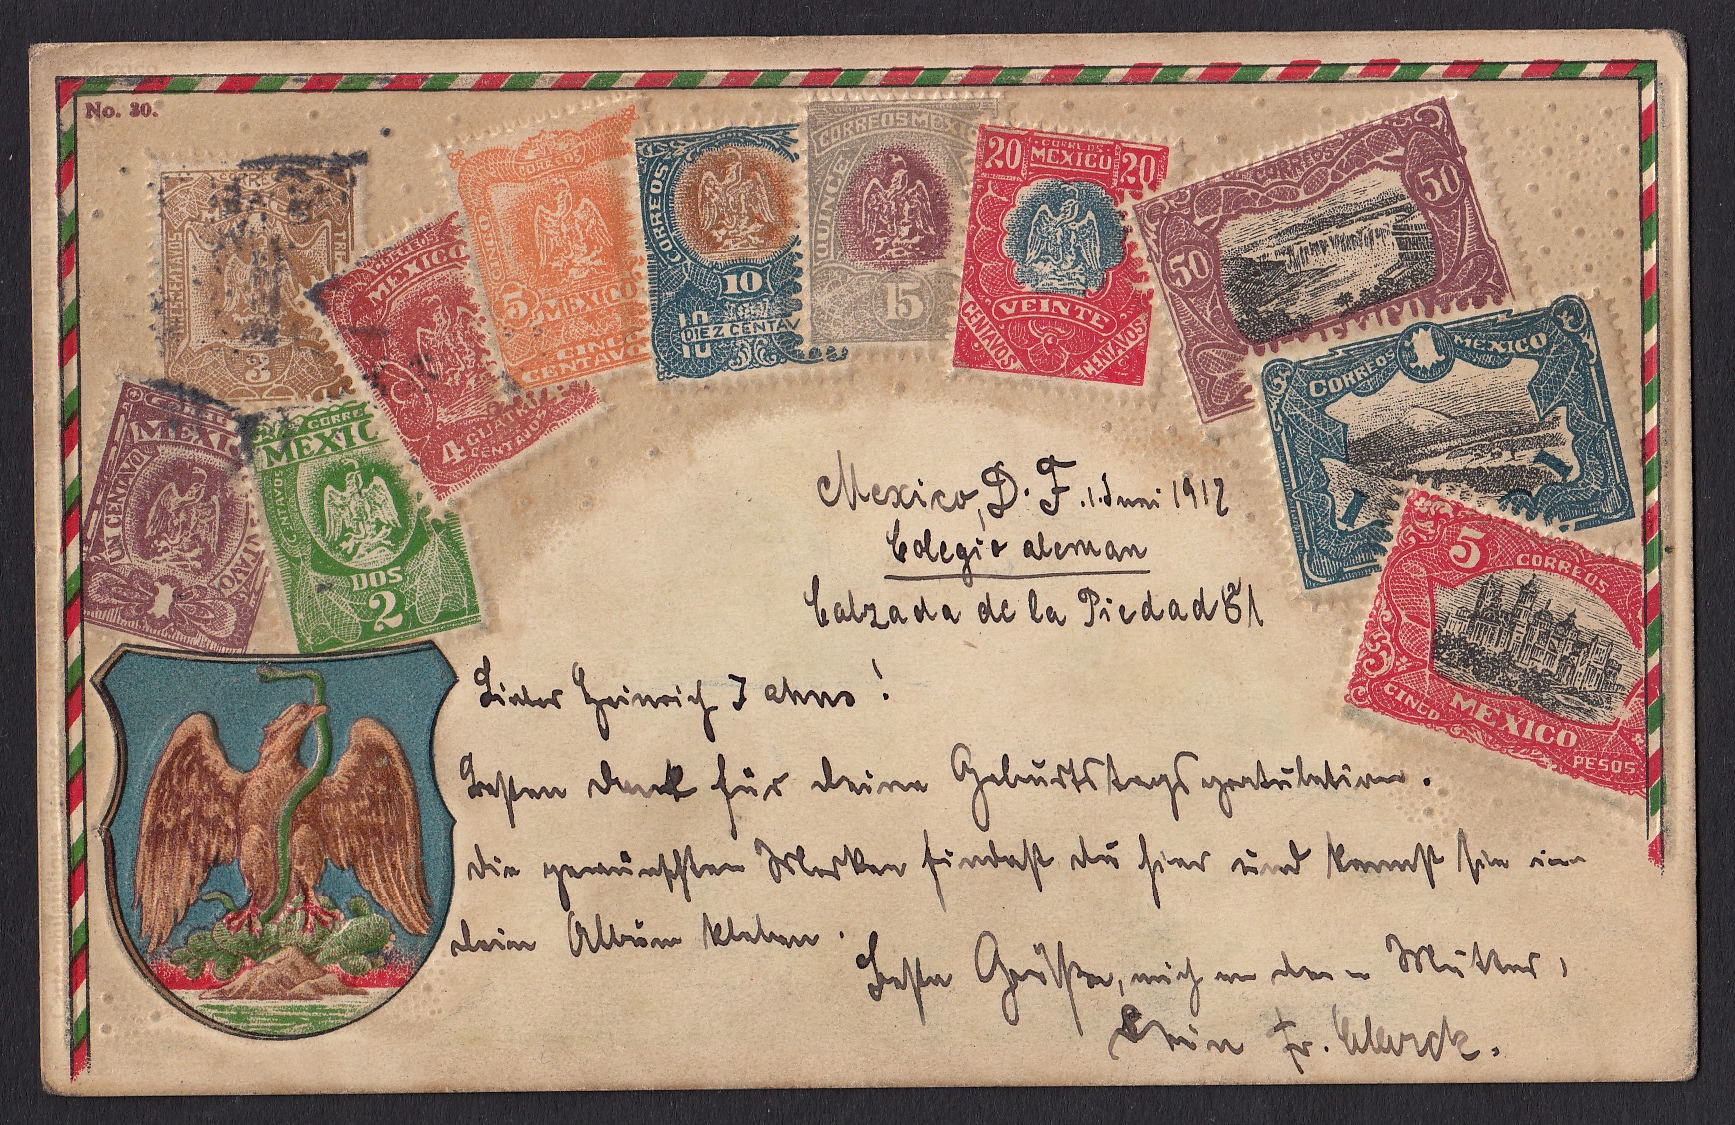 No. 30.
CORRE
TRE
3
MEXICO
4 CUATRO
CENTAVOS
CORREOS
CINCO
5 MEXICO
CINCO
CENTAVO
CORREOS
10
DIEZ CENTAV
CORREOS MEXIC
QUINCE
15
CORREOS
20 MEXICO 20
VEINTE
CENTAVOS CENTAVOS
CORREOS
50
50
CORREOS 1 MEXICO
1
5 CORREOS
CINCO MEXICO
PESOS
CORREO
MEXI
UN CENTAVO
CORRE
MEXIC
DOS
2
Mexico, D. F. 1. Juni 1912
Colegio aleman
Calzada de la Piedad 81
Lieber Heinrich Jahns!
Besten Dank für deine Geburtstagsgratulation.
Die gewünschten Marken findest du hier und kannst sie in
dein Album kleben.
Beste Grüße, auch an deine Mutter,
Dein Fr.